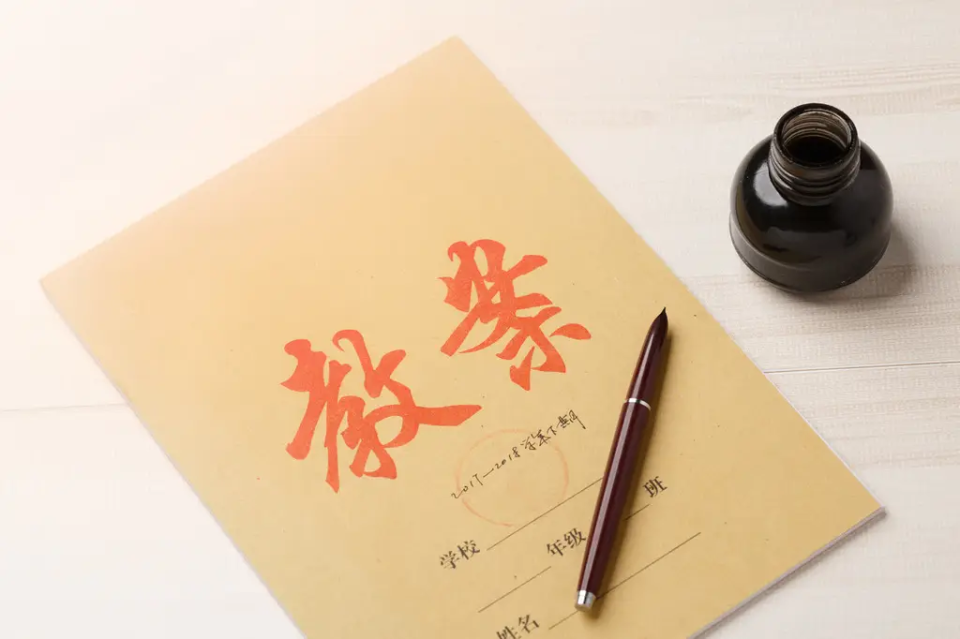 教案
2017—2018学年下学期
学校
年级 班
姓名